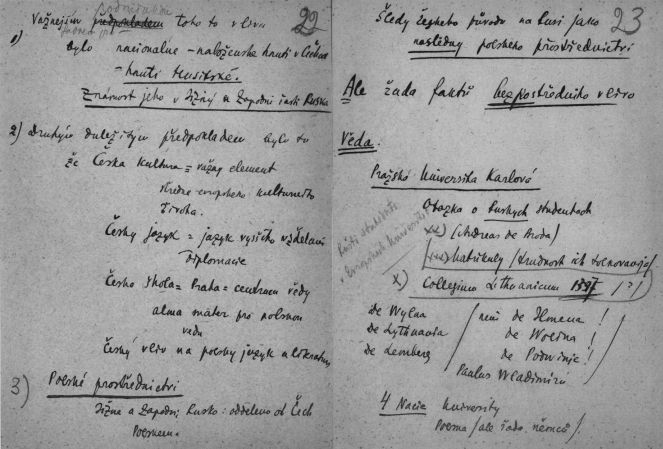 22
1) Važnejším předpokladem toho to vlivu
bylo nacionalne - naboženske hnuti v Čechach
- hnuti Husitské.
Známost jeho v Jižný a Zapadni časti Ruska
2) Druhým duležitym předpokladem bylo to
že Česka Kultura = važny element
středne evropského kulturneho
života.
Česky jazyk = jazyk vysšeho vzdelani
diplomacie
Česka škola = Praha = centrum vědy
alma mater pro polskou
vedu
Český vliv na polsky jazyk a literaturu
3) Polské prostřednictvi
Jižna a Zapadni Rusko: oddeleno od Čech
Polskem.
23
Šledy českeho původu na Rusi jako
nasledky polskeho přostřednictvi
Ale žada faktů bezpostředniho vlivu
Věda.
Pražská Universita Karlová
Otazka o Ruskych studentach
Rušti studenti
v Evropskych Universitach
xx) (Andreas de Russia)
Matrikuly (trudnost ich tolkovania)
x) Collegium Lithuanicum 1397 (?)
de Wylna
de Lythuania
de Lemberg
není de Hmena!
de Wolina!
de Podwinie!
Paulus Wladimiri
4 Nacie University
Polona (ale řada němců).